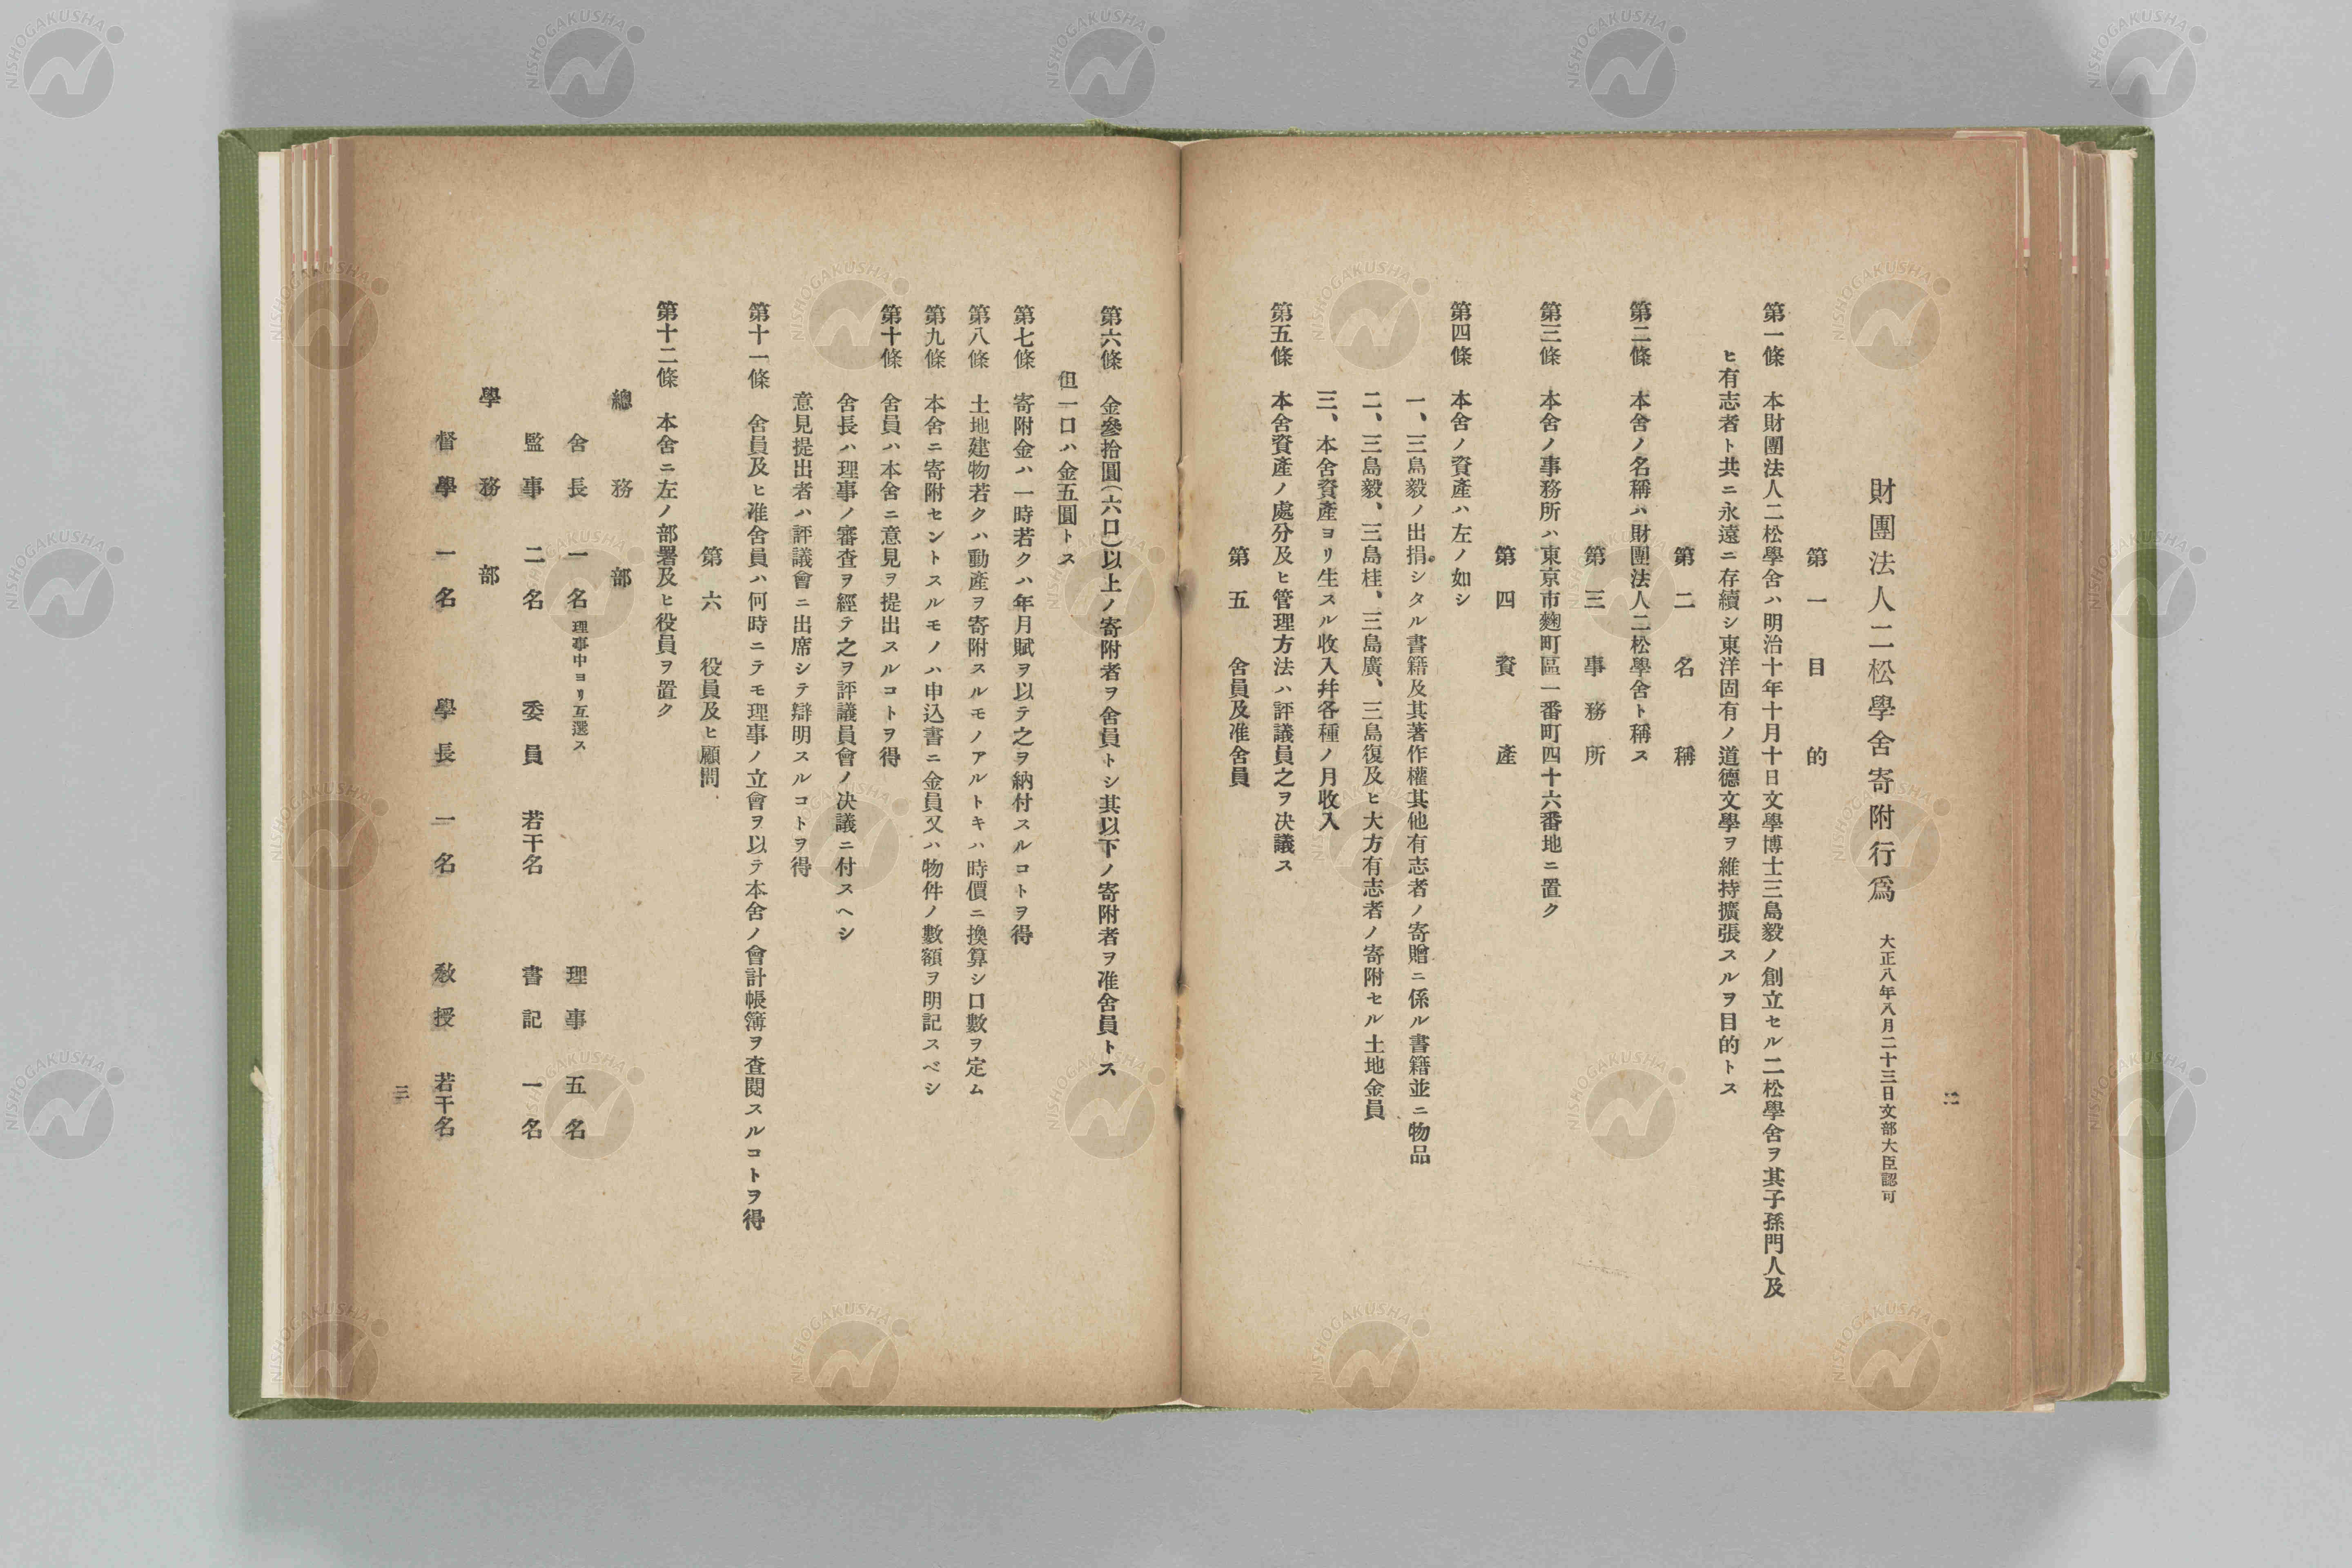 二
財團法人二松學舍寄附行爲 大正八年八月二十三日文部大臣認可
第一 目的
第一條 本財團法人二松學舍ハ明治十年十月十日文學博士三島毅ノ創立セル二松學舍ヲ其子孫門人及
ヒ有志者ト共ニ永遠ニ存續シ東洋固有ノ道德文學ヲ維持擴張スルヲ目的トス
第二 名稱
第二條 本舍ノ名稱ハ財團法人二松學舍ト稱ス
第三 事務所
第三條 本舍ノ事務所ハ東京市麴町區一番町四十六番地ニ置ク
第四 資產
第四條 本舍ノ資產ハ左ノ如シ
一、三島毅ノ出捐シタル書籍及其著作權其他有志者ノ寄贈ニ係ル書籍並ニ物品
二、三島毅、三島桂、三島廣、三島復及ヒ大方有志者ノ寄附セル土地金員
三、本舍資產ヨリ生スル收入幷各種ノ月收入
第五條 本舍資產ノ處分及ヒ管理方法ハ評議員之ヲ决議ス
第五 舍員及准舍員
第六條 金參拾圓(六口)以上ノ寄附者ヲ舍員トシ其以下ノ寄附者ヲ准舍員トス
但一口ハ金五圓トス
第七條 寄附金ハ一時若クハ年月賦ヲ以テ之ヲ納付スルコトヲ得
第八條 土地建物若クハ動產ヲ寄附スルモノアルトキハ時價ニ換算シ口數ヲ定ム
第九條 本舍ニ寄附セントスルモノハ申込書ニ金員又ハ物件ノ數額ヲ明記スベシ
第十條 舍員ハ本舍ニ意見ヲ提出スルコトヲ得
舍長ハ理事ノ審查ヲ經テ之ヲ評議員會ノ决議ニ付スヘシ
意見提出者ハ評議會ニ出席シテ辯明スルコトヲ得
第十一條 舍員及ヒ准舍員ハ何時ニテモ理事ノ立會ヲ以テ本舍ノ會計帳簿ヲ查閱スルコトヲ得
第六 役員及ヒ顧問
第十二條 本舍ニ左ノ部署及ヒ役員ヲ置ク
總務部
舍長 一名 理事中ヨリ互選ス 理事 五名
監事 二名 委員 若干名 書記 一名
學務部
督學 一名 學長 一名 敎授 若干名
三
NISHOGAKUSHA